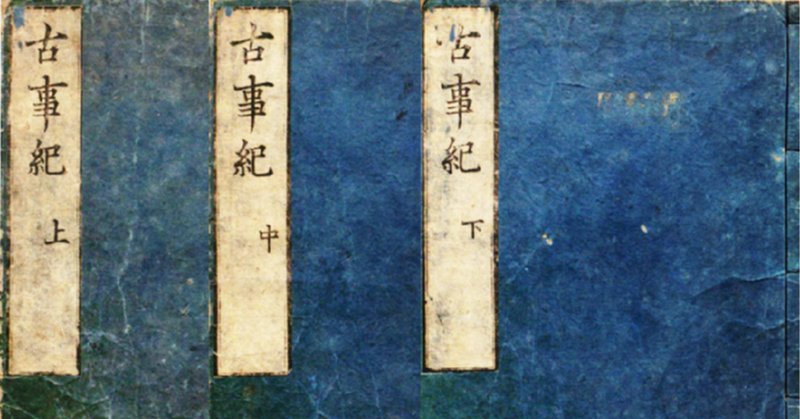 古事紀 上
古事紀 中
古事紀 下